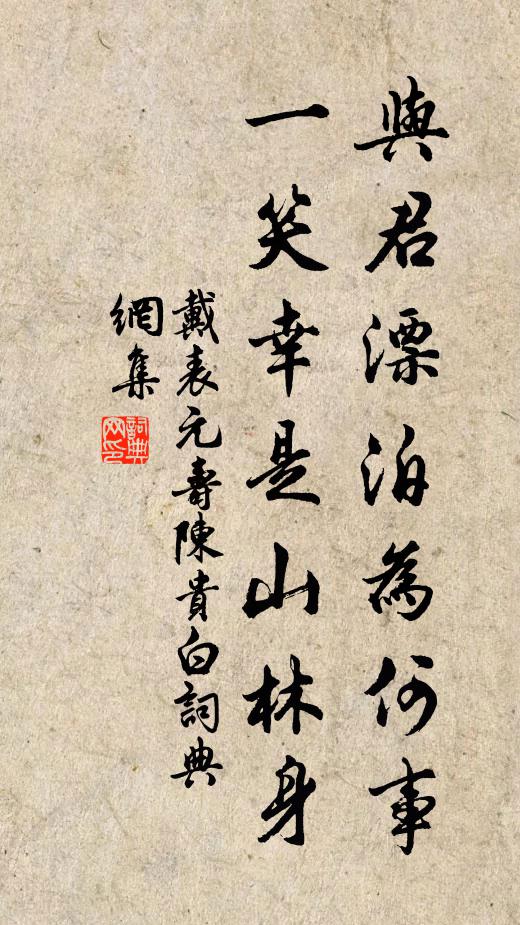 與君漂泊為何事
一笑幸是山林身
戴表元壽陳貴白詞典
網集
詞典網印